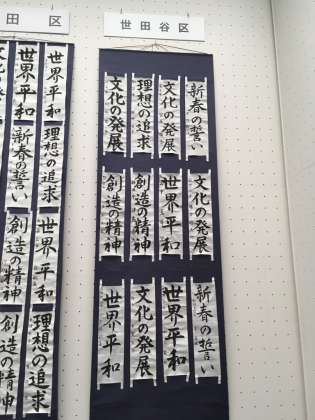 田区
世田谷区
世界平和
世界平和
理想の追求
新春の誓い
世界平和
創造の精神
理想の追求
創造の精神
新春の誓い
文化の発展
理想の追求
文化の発展
文化の発展
世界平和
創造の精神
創造の精神
新春の誓い
世界平和
文化の発展
世界平和